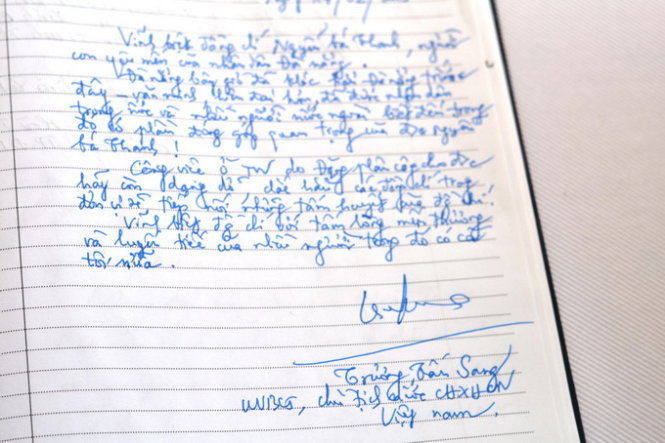 Vĩnh biệt đồng chí Nguyễn Bá Thanh, người
con yêu mến của nhân dân Đà Nẵng.
Đà Nẵng bây giờ đã khác với Đà Nẵng trước
đây – văn minh hơn, đã được nhân dân
trong nước và nhiều người nước ngoài biết đến trong
đó có phần đóng góp quan trọng của đ/c Nguyễn
Bá Thanh!
Công việc ở TW do Đảng phân công cho đ/c
hãy còn dang dở các đồng chí trong
đơn vị sẽ tiếp nối những tâm huyết của đ/chí!
Vĩnh biệt đ/chí với tấm lòng mến thương
và luyến tiếc của nhiều người trong đó có cả
tôi nữa.
Trương Tấn Sang
UVBCT, Chủ tịch nước CHXHCN
Việt Nam.